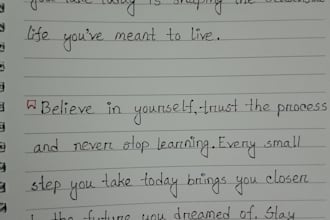 you take today is shaping the
life you've meant to live.
Believe in yourself, trust the process
and never stop learning. Every small
step you take today brings you closer
to the future you dreamed of. Stay